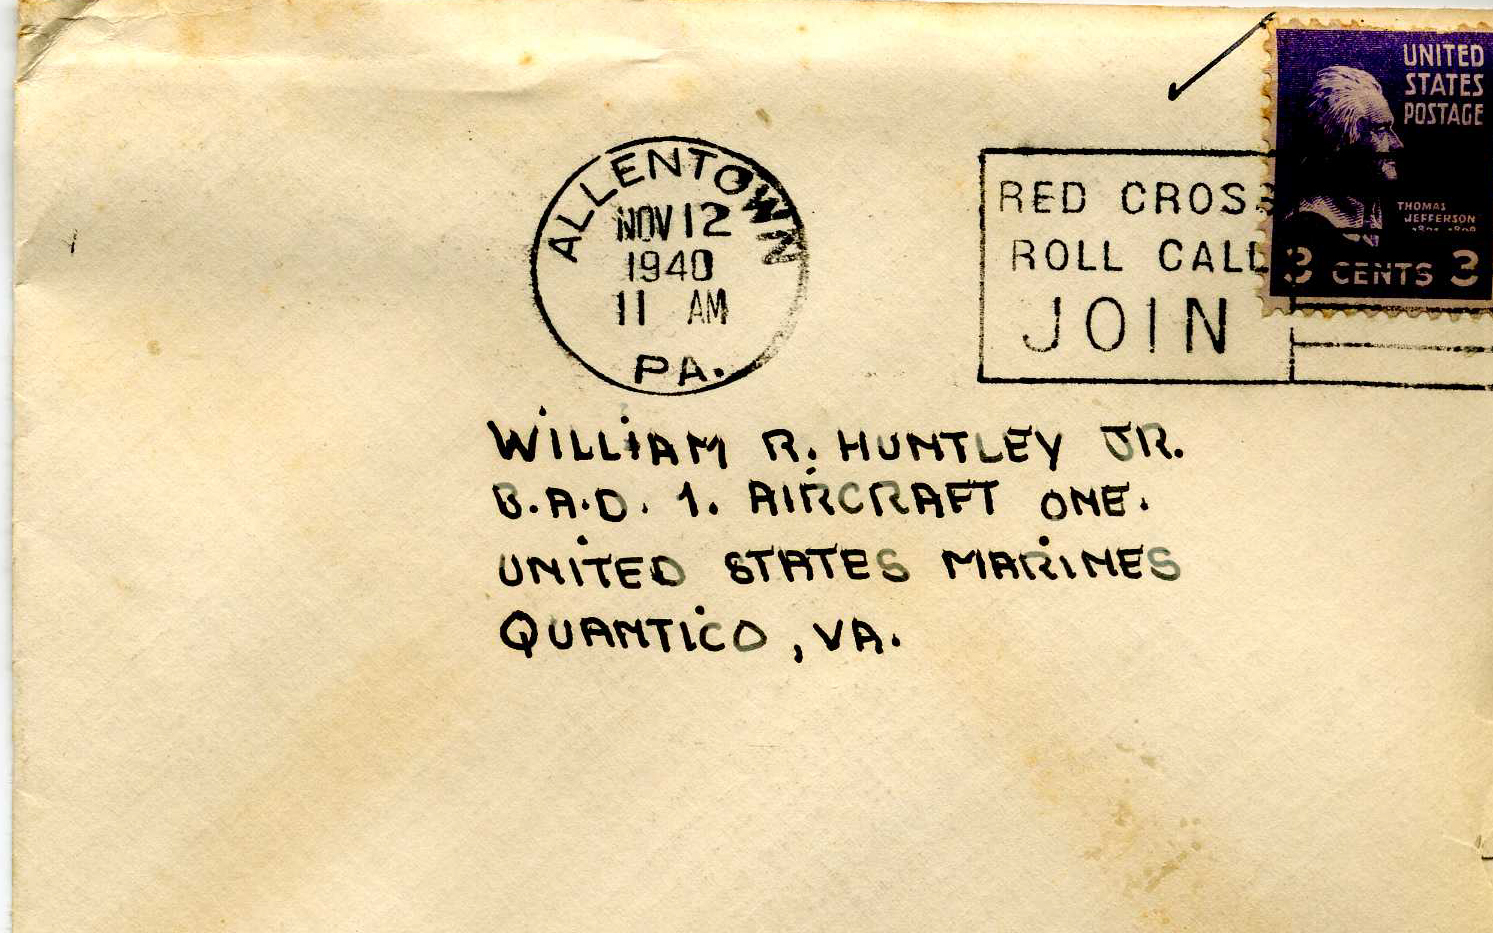 UNITED
STATES
POSTAGE
THOMAS
JEFFERSON
3 CENTS 3
ALLENTOWN
NOV 12
1940
11 AM
PA.
RED CROSS
ROLL CALL
JOIN
WILLIAM R. HUNTLEY JR.
B.A.D. 1. AIRCRAFT ONE.
UNITED STATES MARINES
QUANTICO, VA.